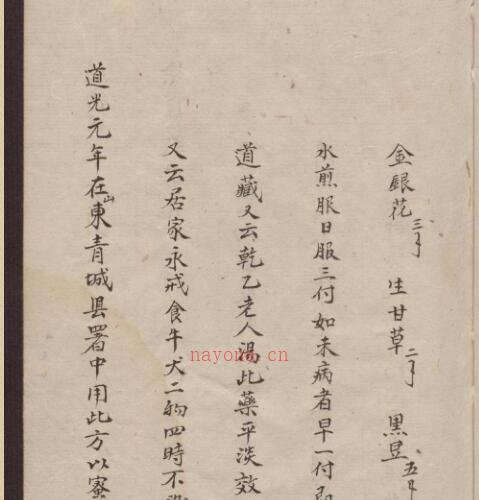 金銀花三𠃌 生甘草二𠃌 黒豆五𠃌
水煎服日服三付如未病者早一付即
道藏又云乾乙老人湯此藥平淡效
又云居家永戒食牛犬二物四時不染
道光元年在山東青城县署中用此方以蜜
nayona.cn